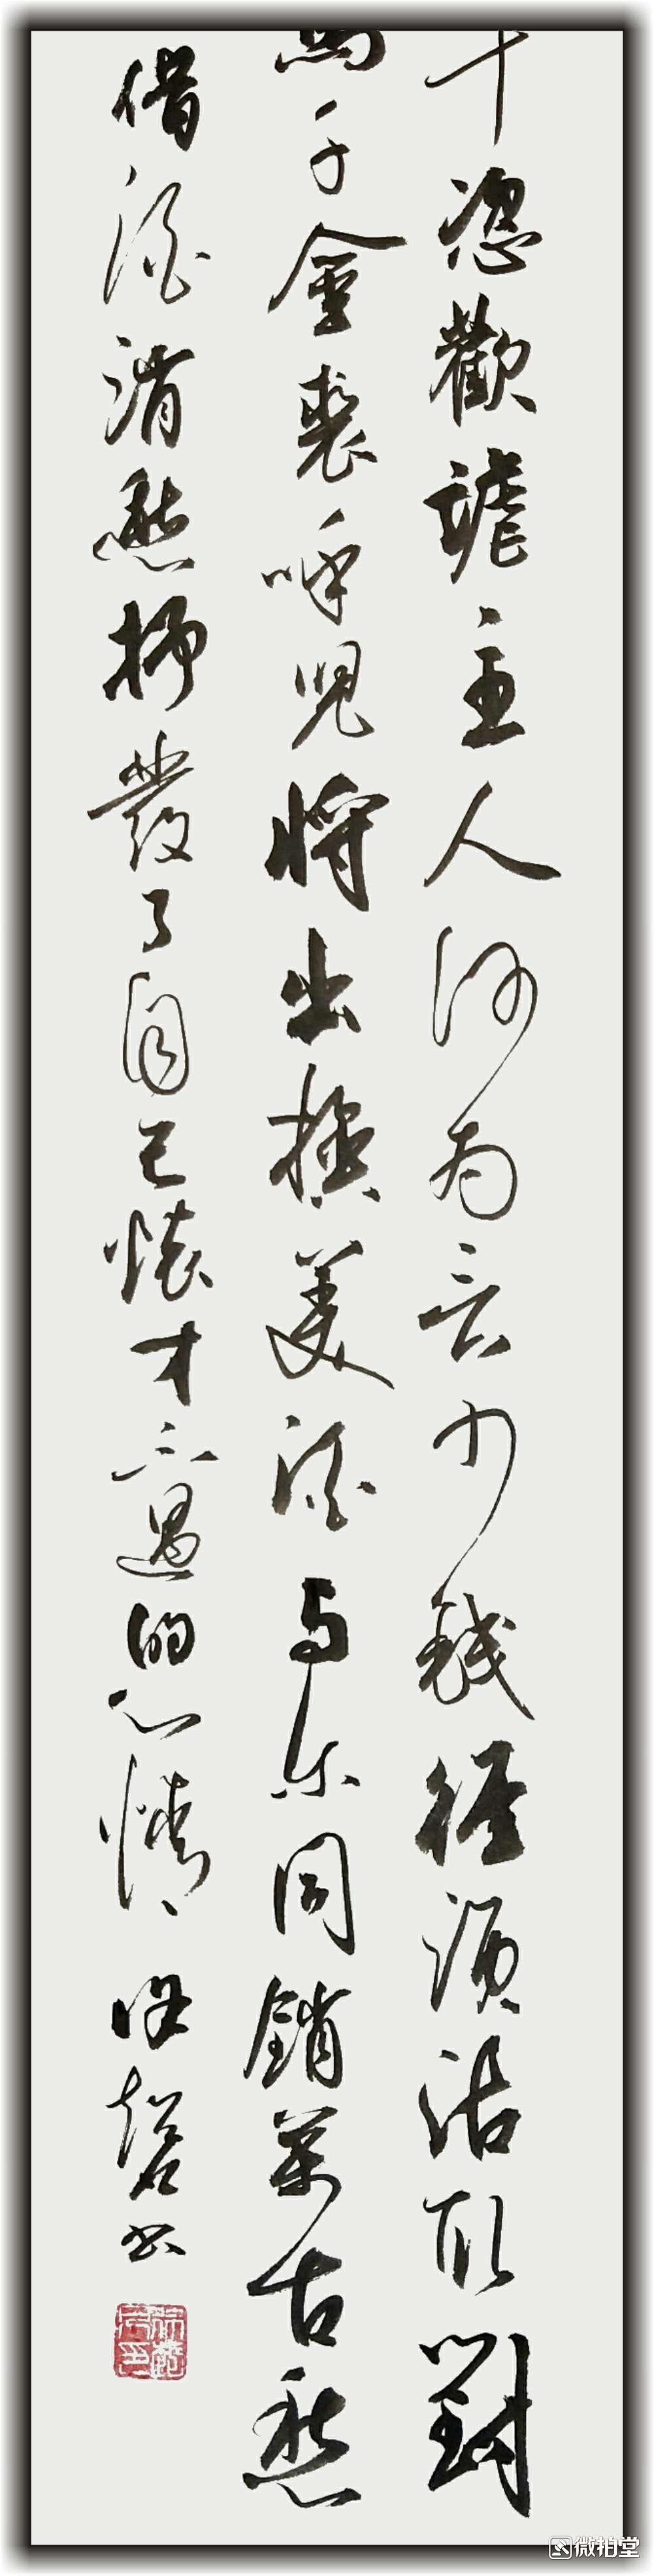 千恣歡謔主人何为言少錢徑須沽取對
馬千金裘呼兒将出換美酒与尔同銷萬古愁
借酒消愁抒發了自己懷才不遇的心情 书
微拍堂